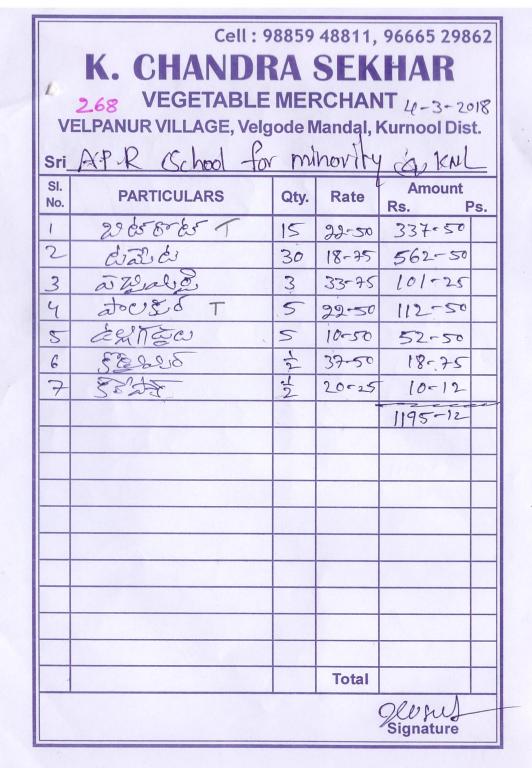 Cell : 98859 48811, 96665 29862
K. CHANDRA SEKHAR
268 VEGETABLE MERCHANT 4-3-2018
VELPANUR VILLAGE, Velgode Mandal, Kurnool Dist.
Sri A.P.R School for minority KNL
Sl. No. PARTICULARS Qty. Rate Amount Rs. Ps.
1 T 15 22-50 337-50
2 టమోట 30 18-75 562-50
3 పచ్చిమిర్చి 3 33-75 101-25
4 పాలకూర T 5 22-50 112-50
5 ఉల్లిగడ్డలు 5 10-50 52-50
6 ½ 37-50 18-75
7 ½ 20-25 10-12
1195-12
Total
Signature